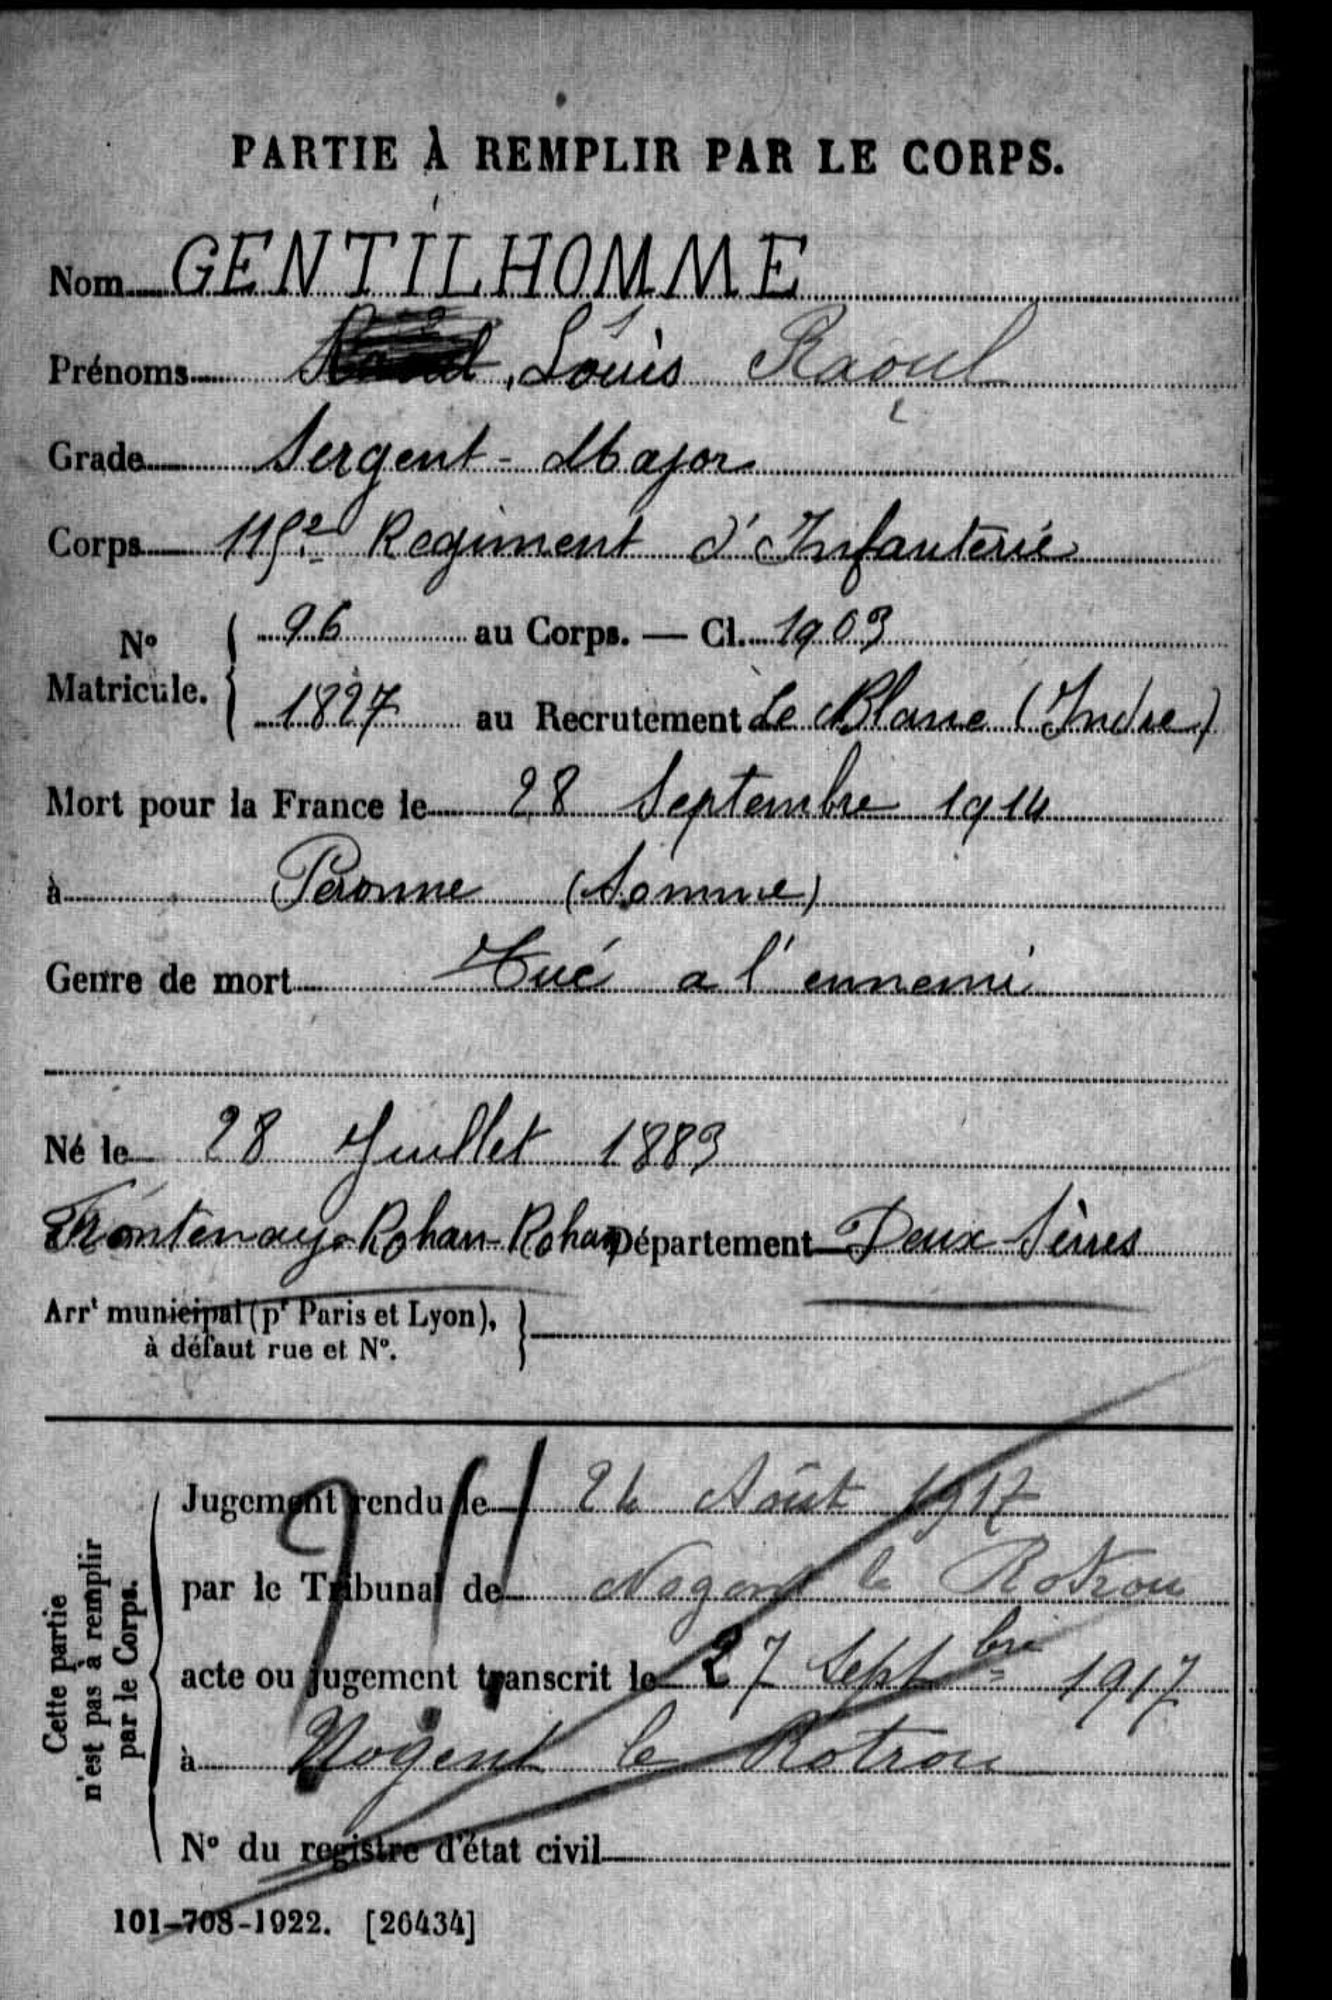 PARTIE À REMPLIR PAR LE CORPS.
Nom GENTILHOMME
Prénoms Louis Raoul
Grade Sergent-Major
Corps 115e Regiment d'Infanterie
N° Matricule. { 96 au Corps. — Cl. 1903
1827 au Recrutement Le Blanc (Indre)
Mort pour la France le 28 Septembre 1914
à Peronne (Somme)
Genre de mort Tué a l'ennemi
Né le 28 Juillet 1883
Frontenay-Rohan-Rohan Département Deux Sèvres
Arrt municipal (pr Paris et Lyon), }
à défaut rue et N°.
Cette partie
n'est pas à remplir
par le Corps.
Jugement rendu le 24 Août 1917
par le Tribunal de Nogent le Rotrou
acte ou jugement transcrit le 27 Septbre 1917
à Nogent le Rotrou
N° du registre d'état civil
101-708-1922. [26434]